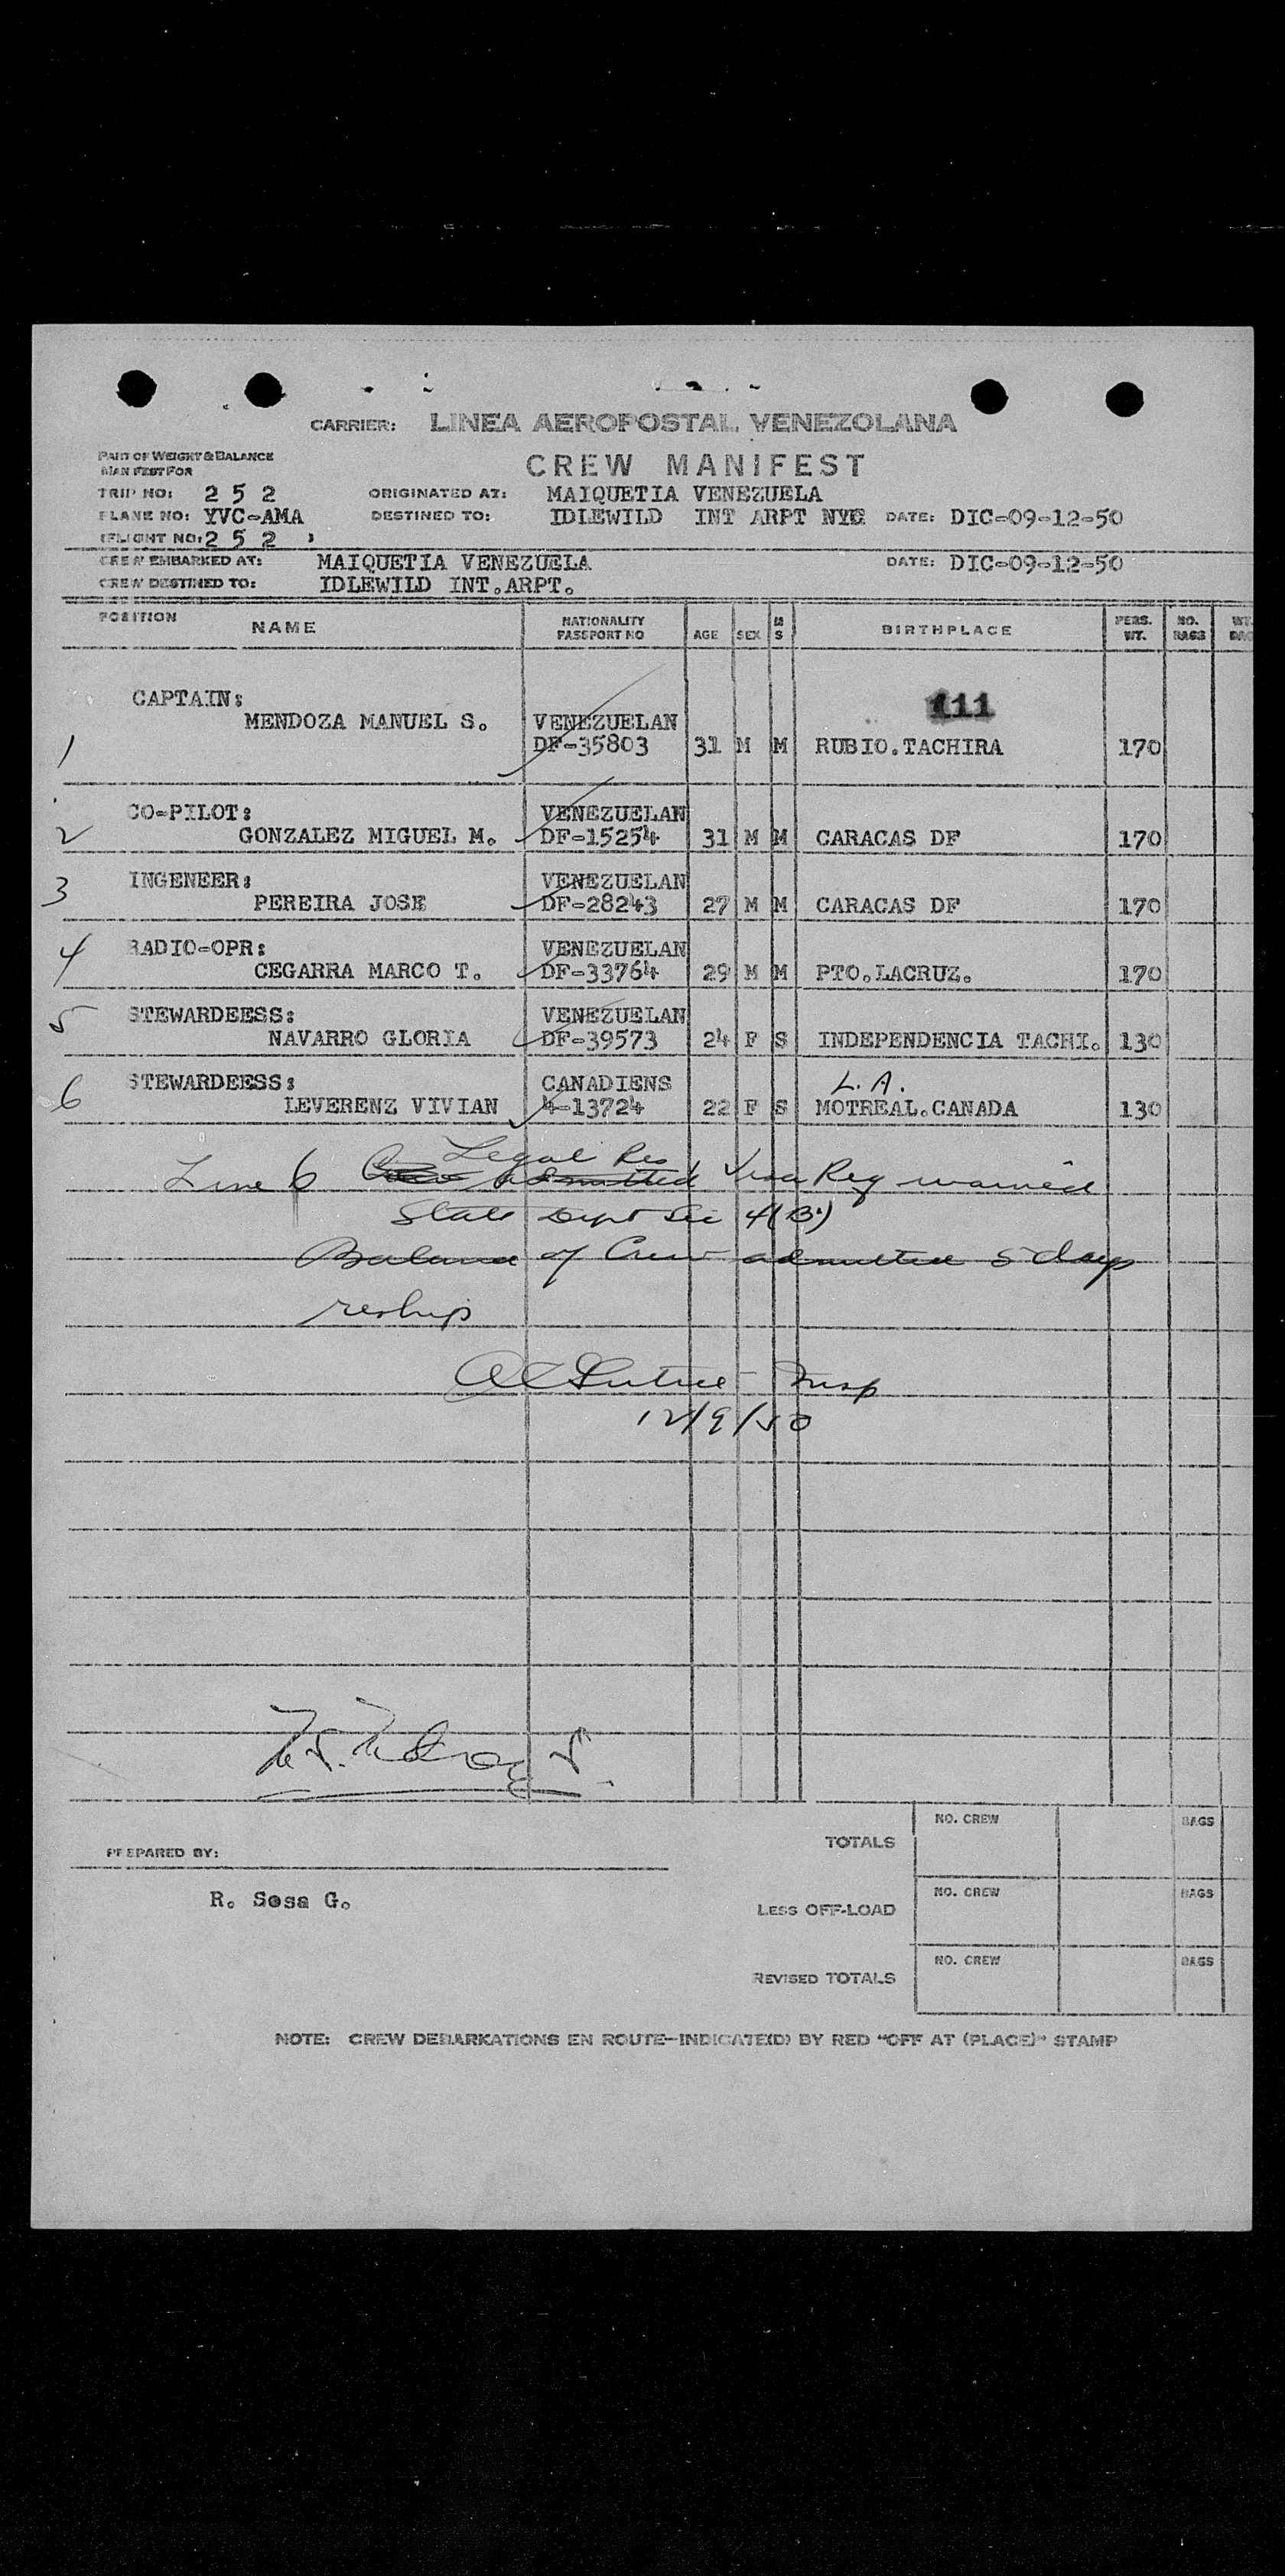 CARRIER: LINEA AEROPOSTAL VENEZOLANA
PART OF WEIGHT & BALANCE
MANIFEST FOR
CREW MANIFEST
TRIP NO: 252 ORIGINATED AT: MAIQUETIA VENEZUELA
PLANE NO: YVC-AMA DESTINED TO: IDLEWILD INT ARPT NYC DATE: DIC-09-12-50
(FLIGHT NO: 252 )
CREW EMBARKED AT: MAIQUETIA VENEZUELA DATE: DIC-09-12-50
CREW DESTINED TO: IDLEWILD INT.ARPT.
POSITION NAME NATIONALITY PASSPORT NO AGE SEX M S BIRTHPLACE PERS. WT. NO. BAGS WT.
111
CAPTAIN:
MENDOZA MANUEL S. VENEZUELAN
1 DF-35803 31 M M RUBIO.TACHIRA 170
CO-PILOT: VENEZUELAN
2 GONZALEZ MIGUEL M. DF-15254 31 M M CARACAS DF 170
INGENEER: VENEZUELAN
3 PEREIRA JOSE DF-28243 27 M M CARACAS DF 170
RADIO-OPR: VENEZUELAN
4 CEGARRA MARCO T. DF-33764 29 M M PTO.LACRUZ. 170
STEWARDEESS: VENEZUELAN
5 NAVARRO GLORIA DF-39573 24 F S INDEPENDENCIA TACHI. 130
STEWARDEESS: CANADIENS L.A.
6 LEVERENZ VIVIAN 4-13724 22 F S MOTREAL.CANADA 130
Legal Res
Line 6 admitted Visa Reg waived
State Dept Sec 4(B)
Balance of Crew admitted 5 days
reship
Insp
12/9/50
PREPARED BY:
R. Sosa G.
TOTALS NO. CREW BAGS
LESS OFF-LOAD NO. CREW BAGS
REVISED TOTALS NO. CREW BAGS
NOTE: CREW DEBARKATIONS EN ROUTE-INDICATE(D) BY RED "OFF AT (PLACE)" STAMP